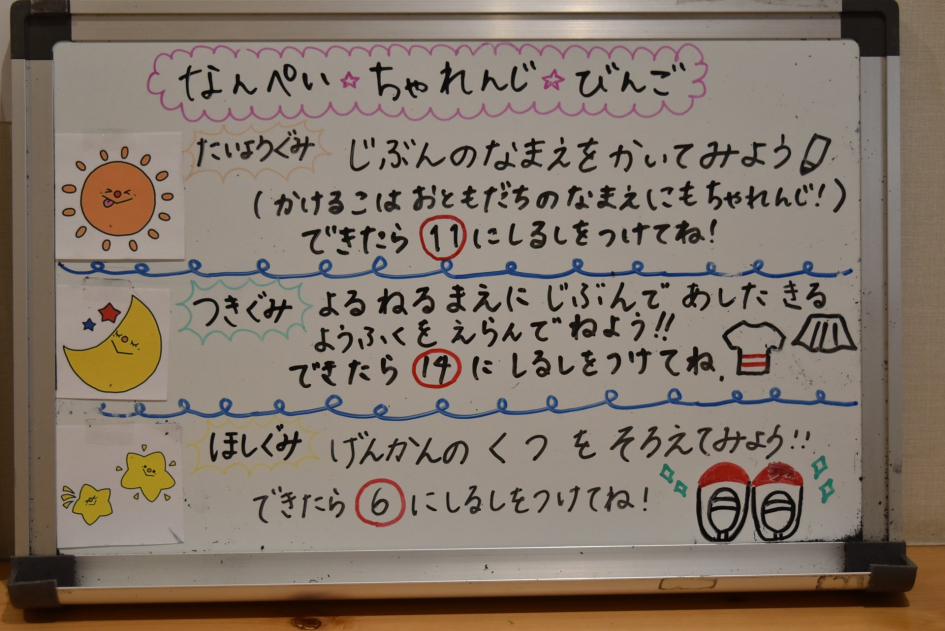 なんぺい☆ちゃれんじ☆びんご
たいようぐみ じぶんのなまえをかいてみよう
(かけるこはおともだちのなまえにもちゃれんじ!)
できたら⑪にしるしをつけてね!
つきぐみ よるねるまえにじぶんであしたきる
ようふくをえらんでねよう!!
できたら⑭にしるしをつけてね.
ほしぐみ げんかんのくつをそろえてみよう!!
できたら⑥にしるしをつけてね!